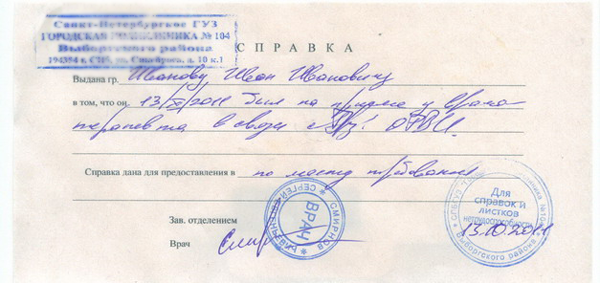 Санкт-Петербургское ГУЗ
ГОРОДСКАЯ ПОЛИКЛИНИКА № 104
Выборгского района
194354 г. СПб, ул. д. 10 к.1
СПРАВКА
Выдана гр. Иванову Иван Ивановичу
в том, что он 13/X/2011 был на приеме у врача-
терапевта в связи с Ds: ОРВИ.
Справка дана для предоставления в по месту требования
Зав. отделением
Врач
СМИРНОВ СЕРГЕЙ
ВРАЧ
Для
справок и
листков
нетрудоспособности
Выборгского района
13.10.2011